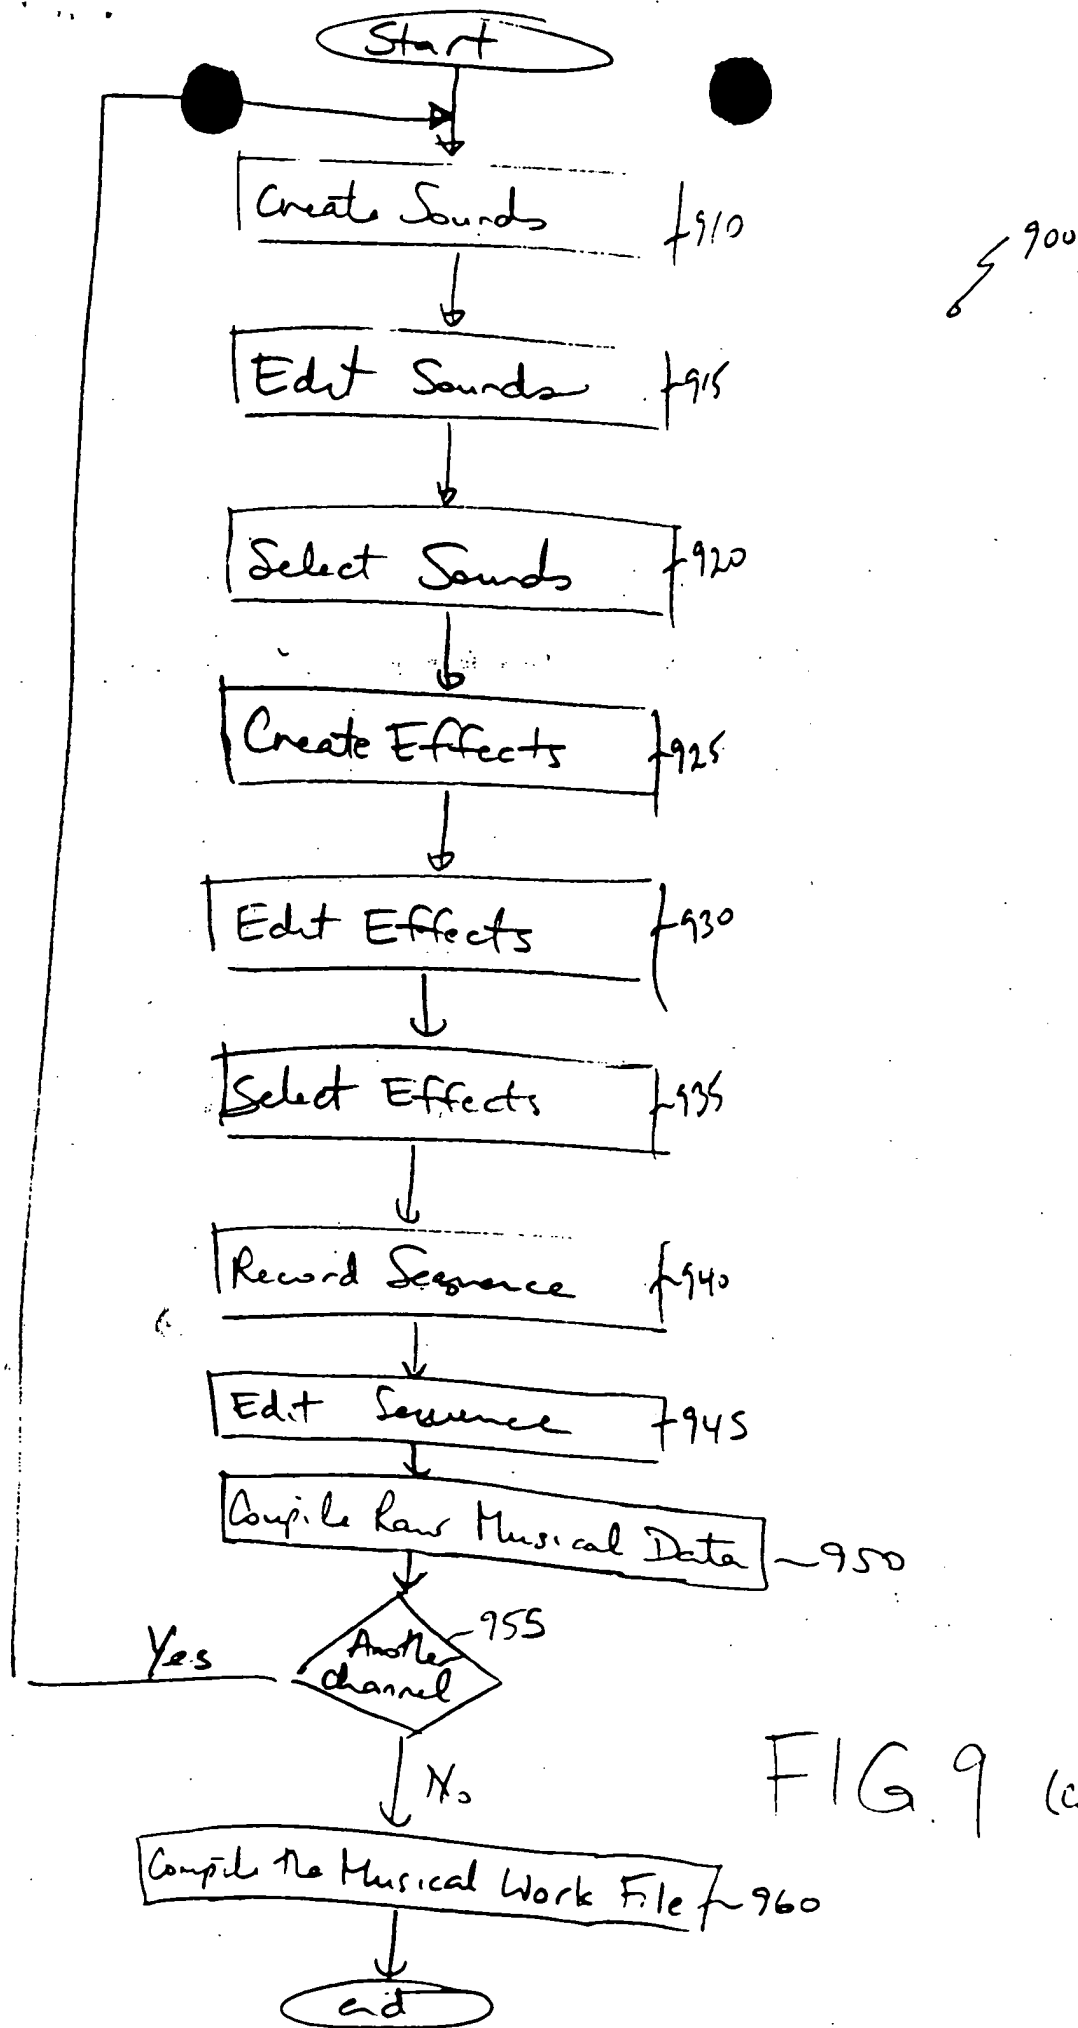 Start
Create Sounds 910
900
Edit Sounds 915
Select Sounds 920
Create Effects 925
Edit Effects 930
Select Effects 935
Record Sequence 940
Edit Sequence 945
Compile Raw Musical Data 950
955
Another
channel
Yes
No
FIG. 9
Compile the Musical Work File 960
end